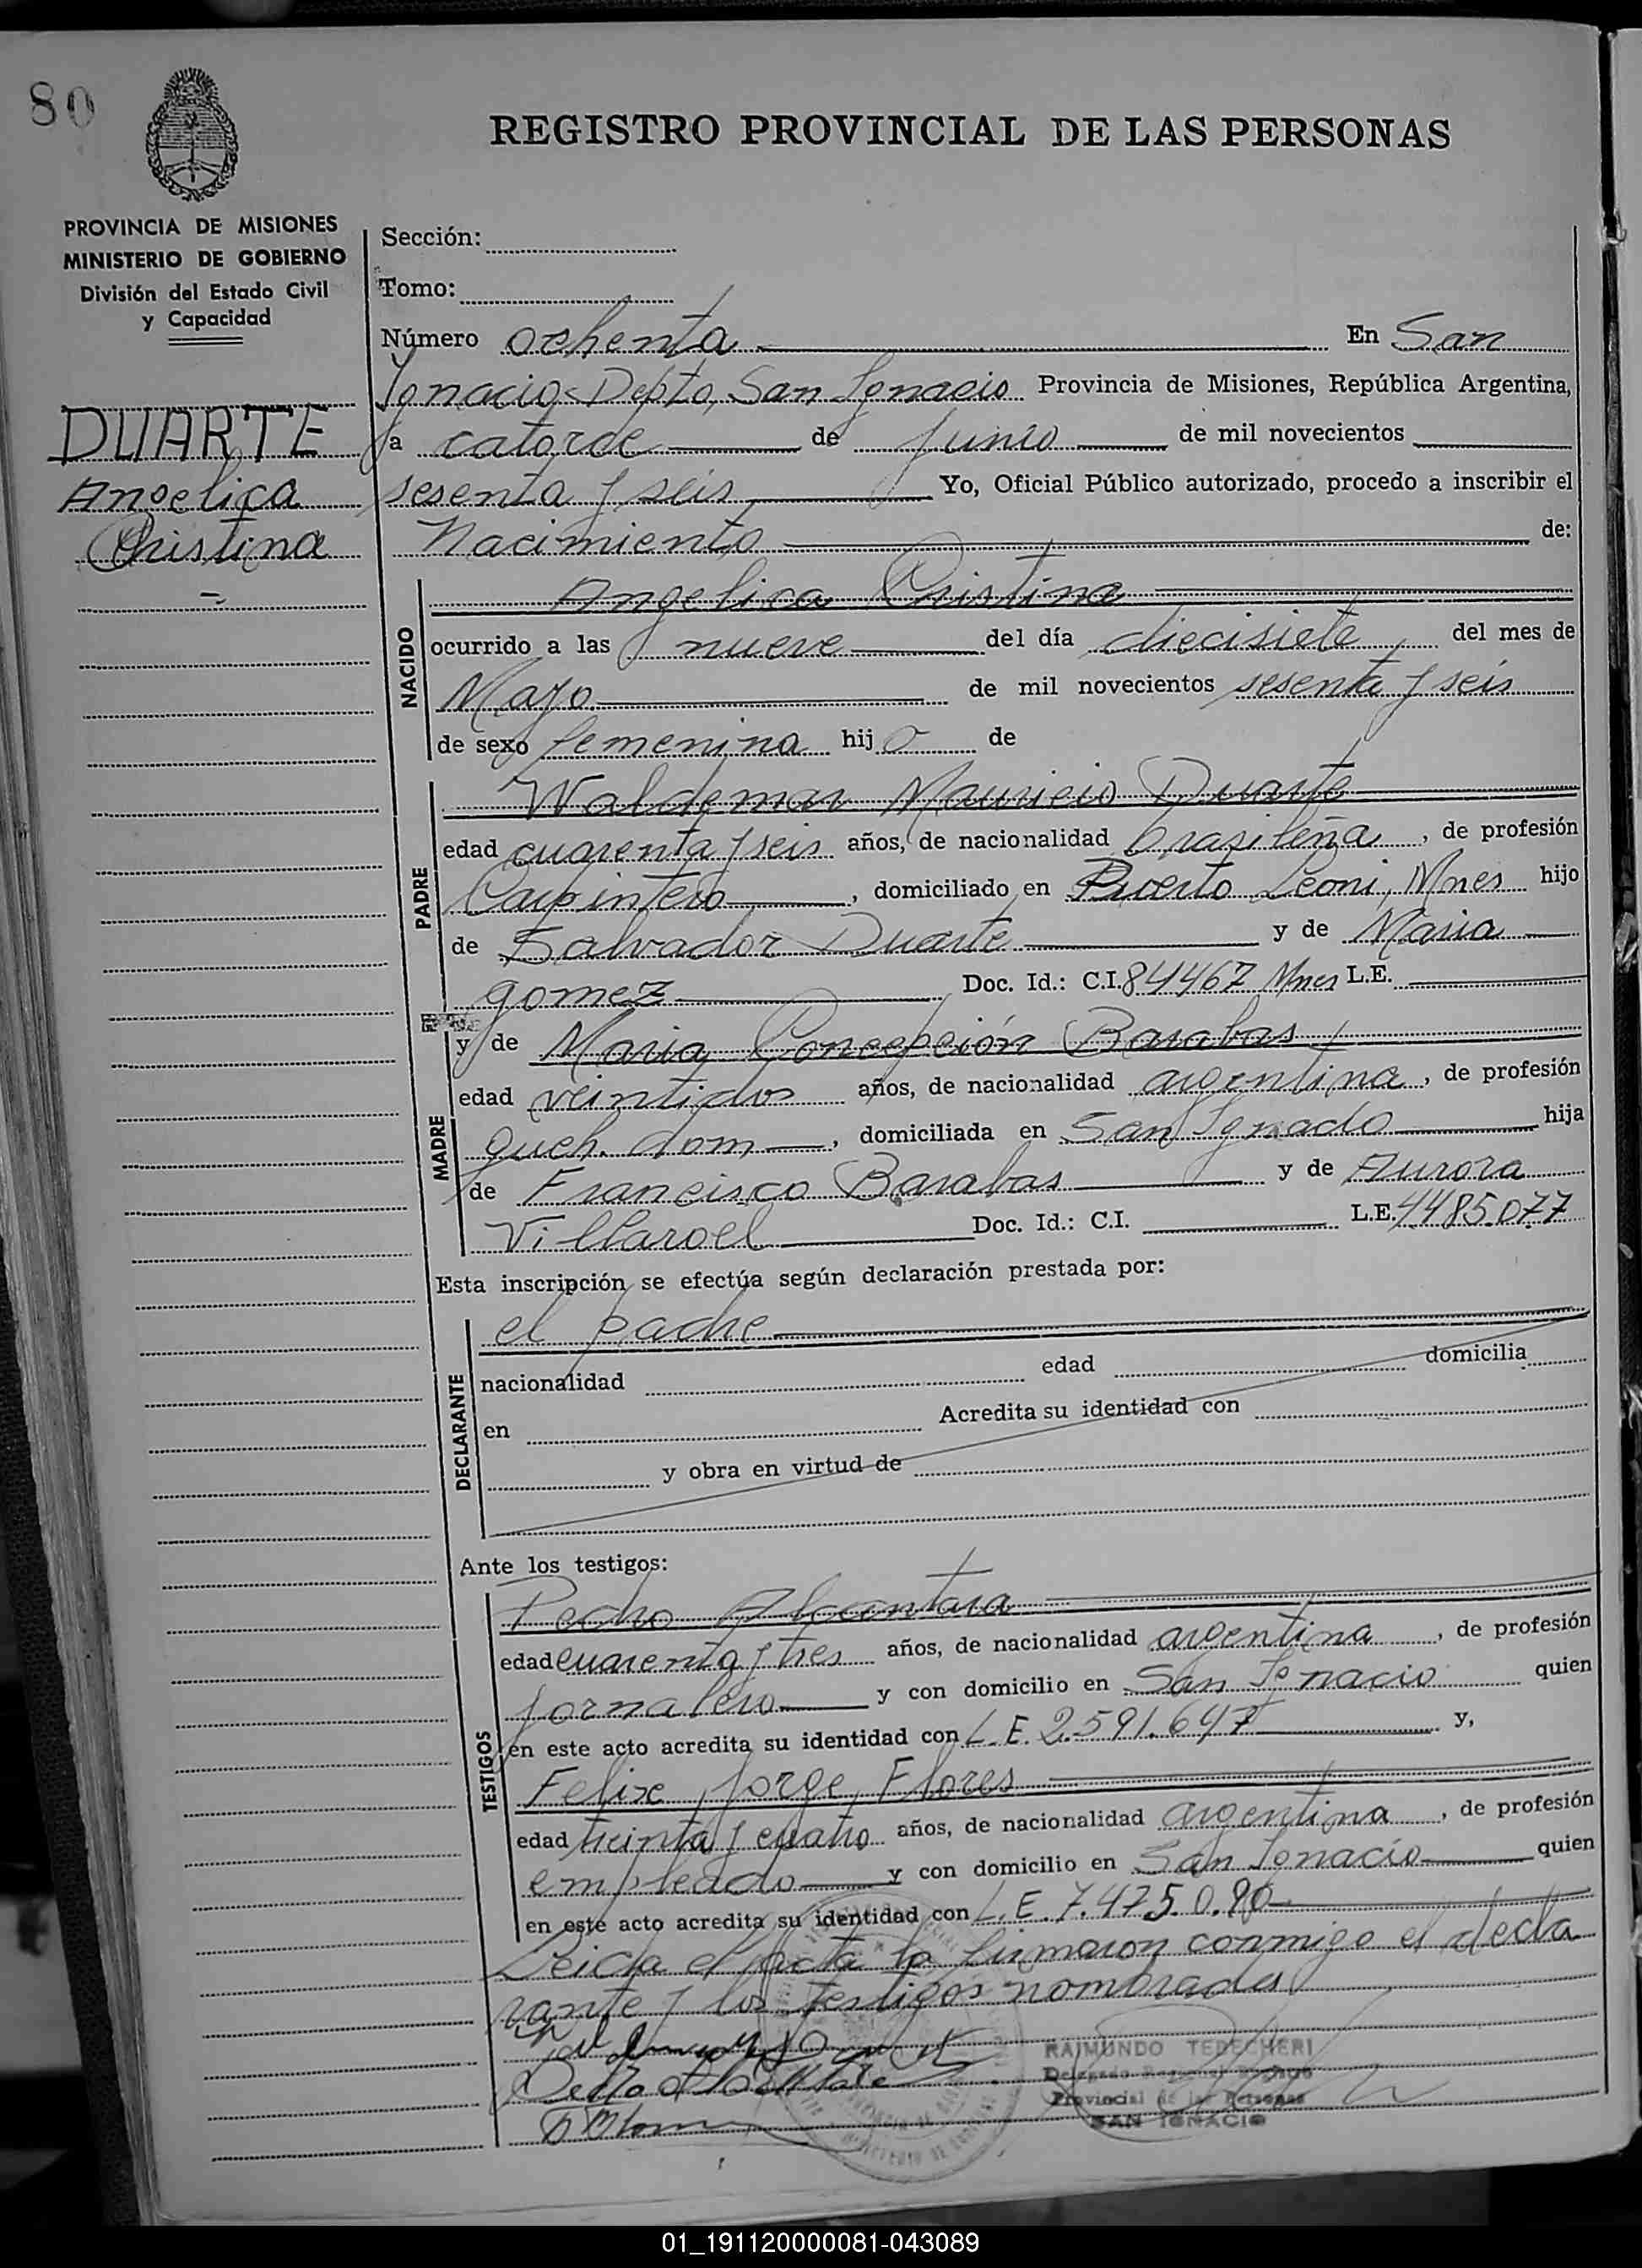 80
REGISTRO PROVINCIAL DE LAS PERSONAS
PROVINCIA DE MISIONES
MINISTERIO DE GOBIERNO
División del Estado Civil
y Capacidad
DUARTE
Angelica
Cristina
Sección:
Tomo:
Número ochenta En San
Ignacio Depto, San Ignacio Provincia de Misiones, República Argentina,
a catorce de Junio de mil novecientos
sesenta y seis Yo, Oficial Público autorizado, procedo a inscribir el
Nacimiento de:
NACIDO
Angelica Cristina
ocurrido a las nueve del día diecisiete del mes de
Mayo de mil novecientos sesenta y seis
de sexo femenina hijo de
PADRE
Waldemar Mauricio Duarte
edad cuarenta y seis años, de nacionalidad brasileña, de profesión
Carpintero, domiciliado en Puerto Leoni, Mnes hijo
de Salvador Duarte y de Maria
gomez Doc. Id.: C.I. 84467 Mnes L.E.
MADRE
y de Maria Concepción Barabas
edad veintidos años, de nacionalidad argentina, de profesión
queh. dom, domiciliada en San Ignacio hija
de Francisco Barabas y de Aurora
Villaroel Doc. Id.: C.I. L.E. 4485.077
Esta inscripción se efectúa según declaración prestada por:
DECLARANTE
el padre
nacionalidad edad domicilia
en Acredita su identidad con
y obra en virtud de
Ante los testigos:
TESTIGOS
Pedro Alcantara
edad cuarenta y tres años, de nacionalidad argentina, de profesión
jornalero y con domicilio en San Ignacio quien
en este acto acredita su identidad con L.E. 2.591.647 y,
Felix Jorge Flores
edad treinta y cuatro años, de nacionalidad argentina, de profesión
empleado y con domicilio en San Ignacio quien
en este acto acredita su identidad con L.E. 7.475.0.90
Leida el acta la firmaron conmigo el decla
rante y los testigos nombrados
RAIMUNDO TEDECHERI
Provincial de las Personas
SAN IGNACIO
01_191120000081-043089